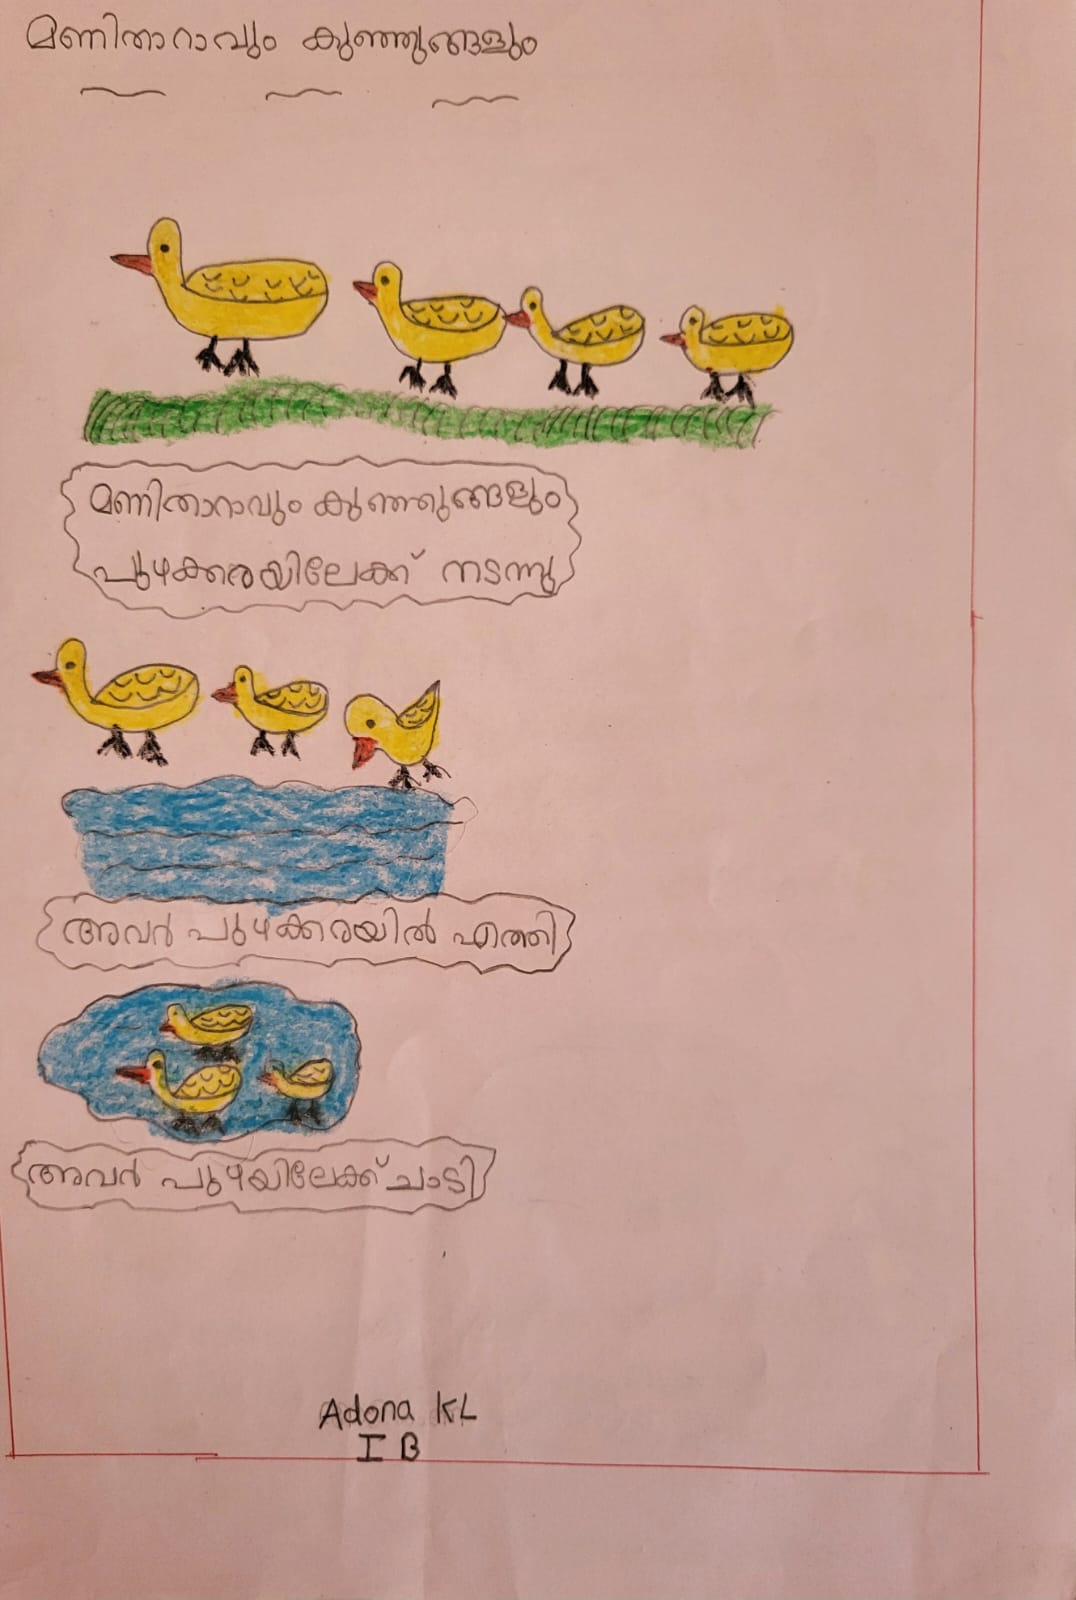 മണിതാറാവും കുഞ്ഞുങ്ങളും
മണിതാറാവും കുഞ്ഞുങ്ങളും
പുഴക്കരയിലേക്ക് നടന്നു
അവർ പുഴക്കരയിൽ എത്തി
അവർ പുഴയിലേക്ക് ചാടി
Adona KL
I B